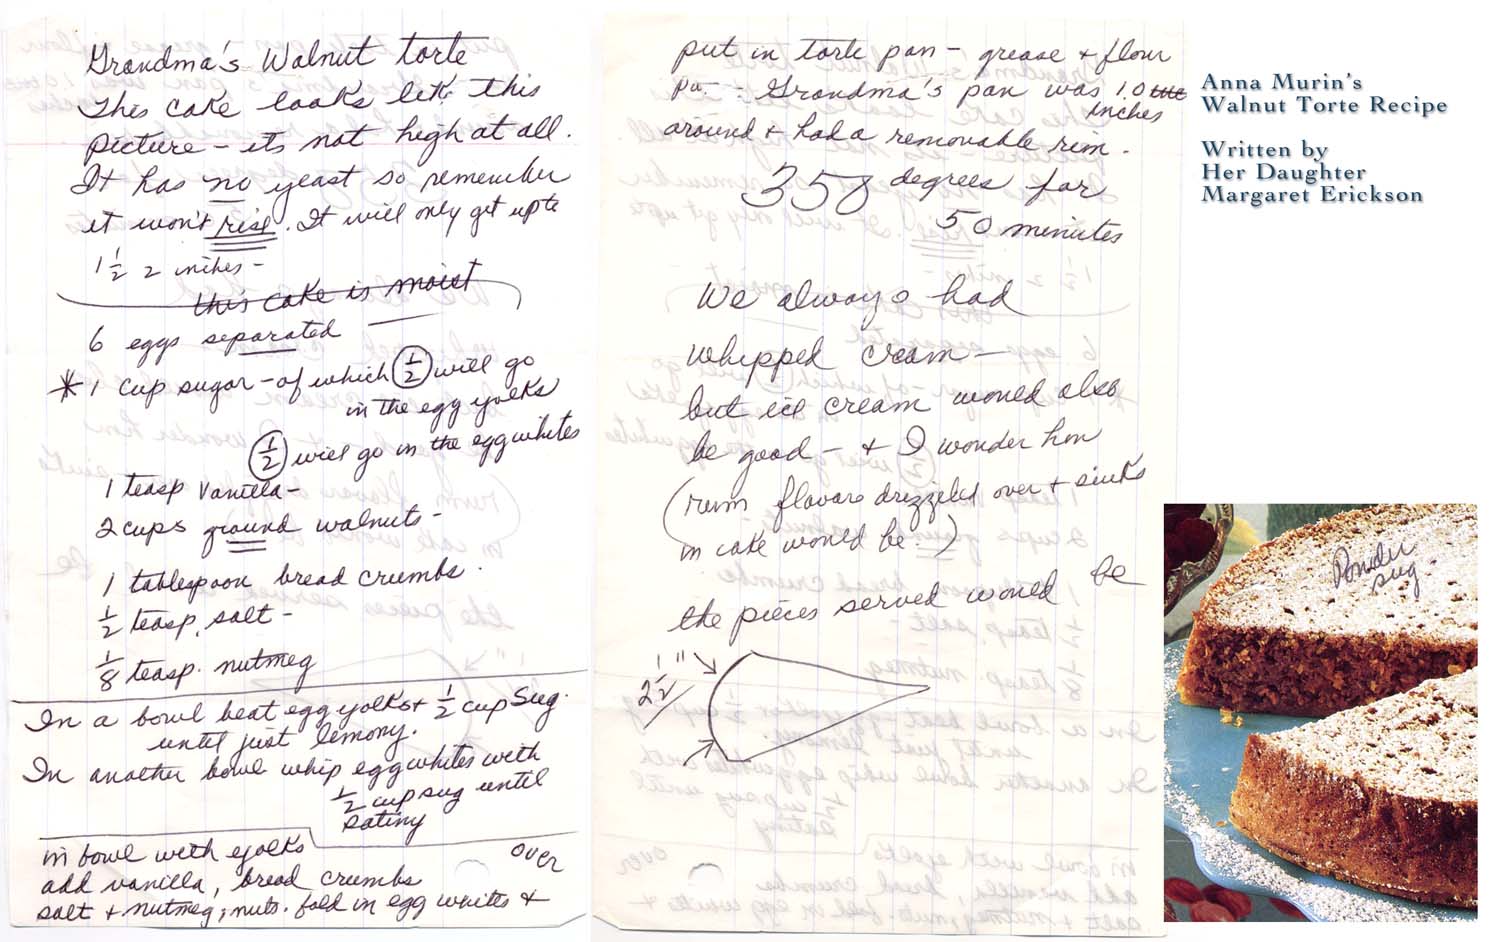 Grandma's Walnut torte
This cake looks like this
picture - it's not high at all.
It has no yeast so remember
it won't rise. It will only get up to
1 1/2 2 inches -
this cake is moist
6 eggs separated
* 1 cup sugar - of which 1/2 will go
in the egg yolks
1/2 will go in the egg whites
1 teasp vanilla -
2 cups ground walnuts -
1 tablespoon bread crumbs.
1/2 teasp. salt -
1/8 teasp. nutmeg
In a bowl beat egg yolks + 1/2 cup sug.
until just lemony.
In another bowl whip egg whites with
1/2 cup sug until
satiny
in bowl with yolks
over
add vanilla, bread crumbs
salt + nutmeg, nuts. fold in egg whites +
put in torte pan - grease + flour
pa. - Grandma's pan was 10
inches
around + had a removable rim.
350 degrees for
50 minutes
We always had
whipped cream -
but ice cream would also
be good - + I wonder how
(rum flavors drizzled over + sinks
in cake would be.)
be
the pieces served would
2 1/2"
Anna Murin's
Walnut Torte Recipe
Written by
Her Daughter
Margaret Erickson
Powder
sug